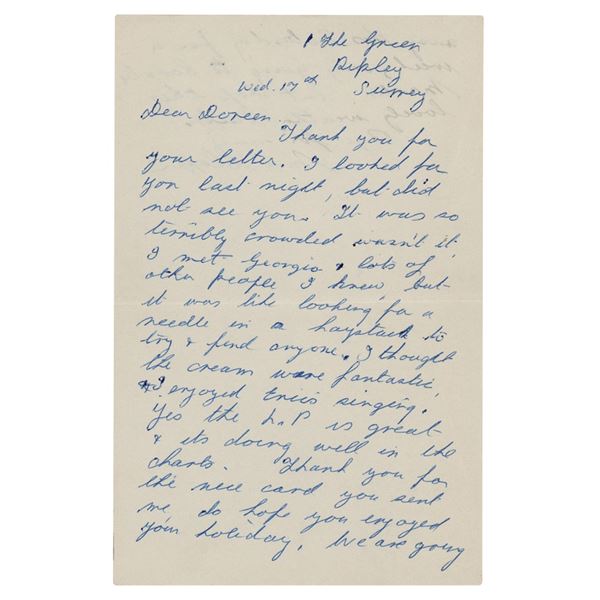 1 The Green
Ripley
Wed. 17th Surrey
Dear Doreen.
Thank you for
your letter. I looked for
you last night, but did
not see you. It was so
terribly crowded wasn't it,
I met Georgia & lots of
other people I knew, but
it was like looking for a
needle in a haystack to
try & find anyone. I thought
the cream were fantastic,
& I enjoyed Erics singing.
Yes the L.P is great
& its doing well in the
charts. Thank you for
the nice card you sent
me, do hope you enjoyed
your holiday. We are going